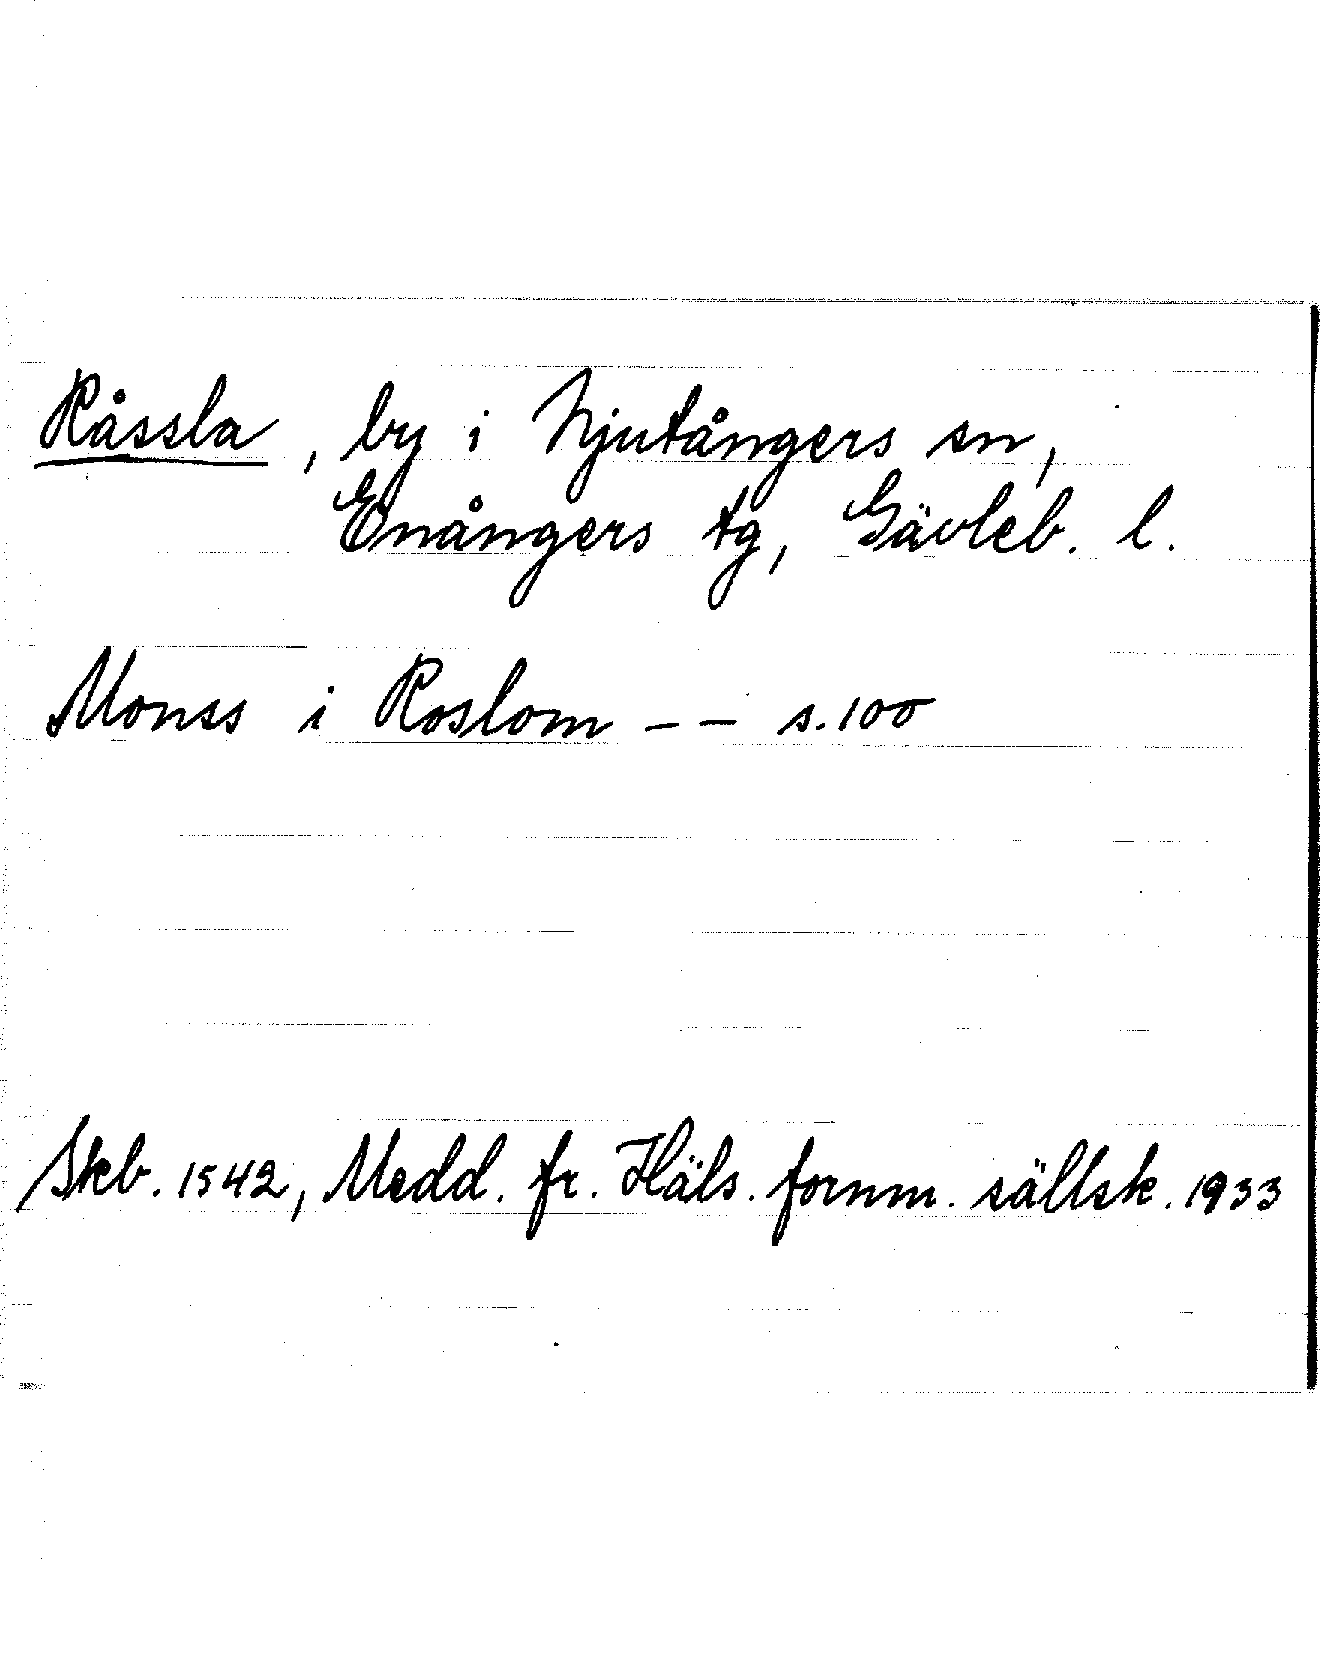 Råssla, by i Njutångers sn,
Enångers tg, Gävleb. l.
Monss i Roslom -- s. 100
Skb. 1542, Medd. fr. Häls. fornm. sällsk. 1933